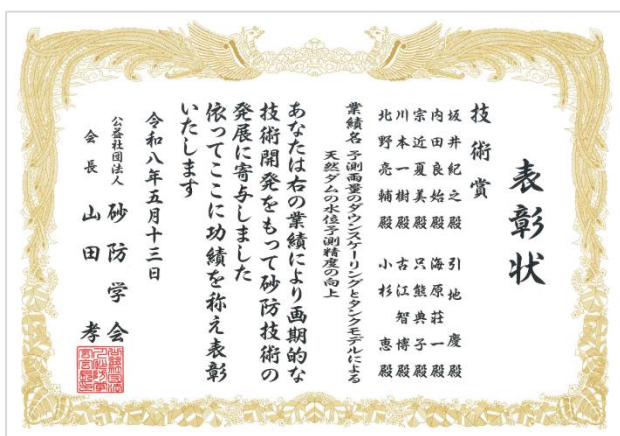 表彰状
技術賞
坂井紀之殿 引地慶殿
内田良始殿 海原荘一殿
宗近夏美殿 只熊典子殿
川本一樹殿 古江智博殿
北野亮輔殿 小杉恵殿
業績名 予測雨量のダウンスケーリングとタンクモデルによる
天然ダムの水位予測精度の向上
あなたは右の業績により画期的な
技術開発をもって砂防技術の
発展に寄与しました
依ってここに功績を称え表彰
いたします
令和八年五月十三日
公益社団法人 砂防学会
会長 山田孝